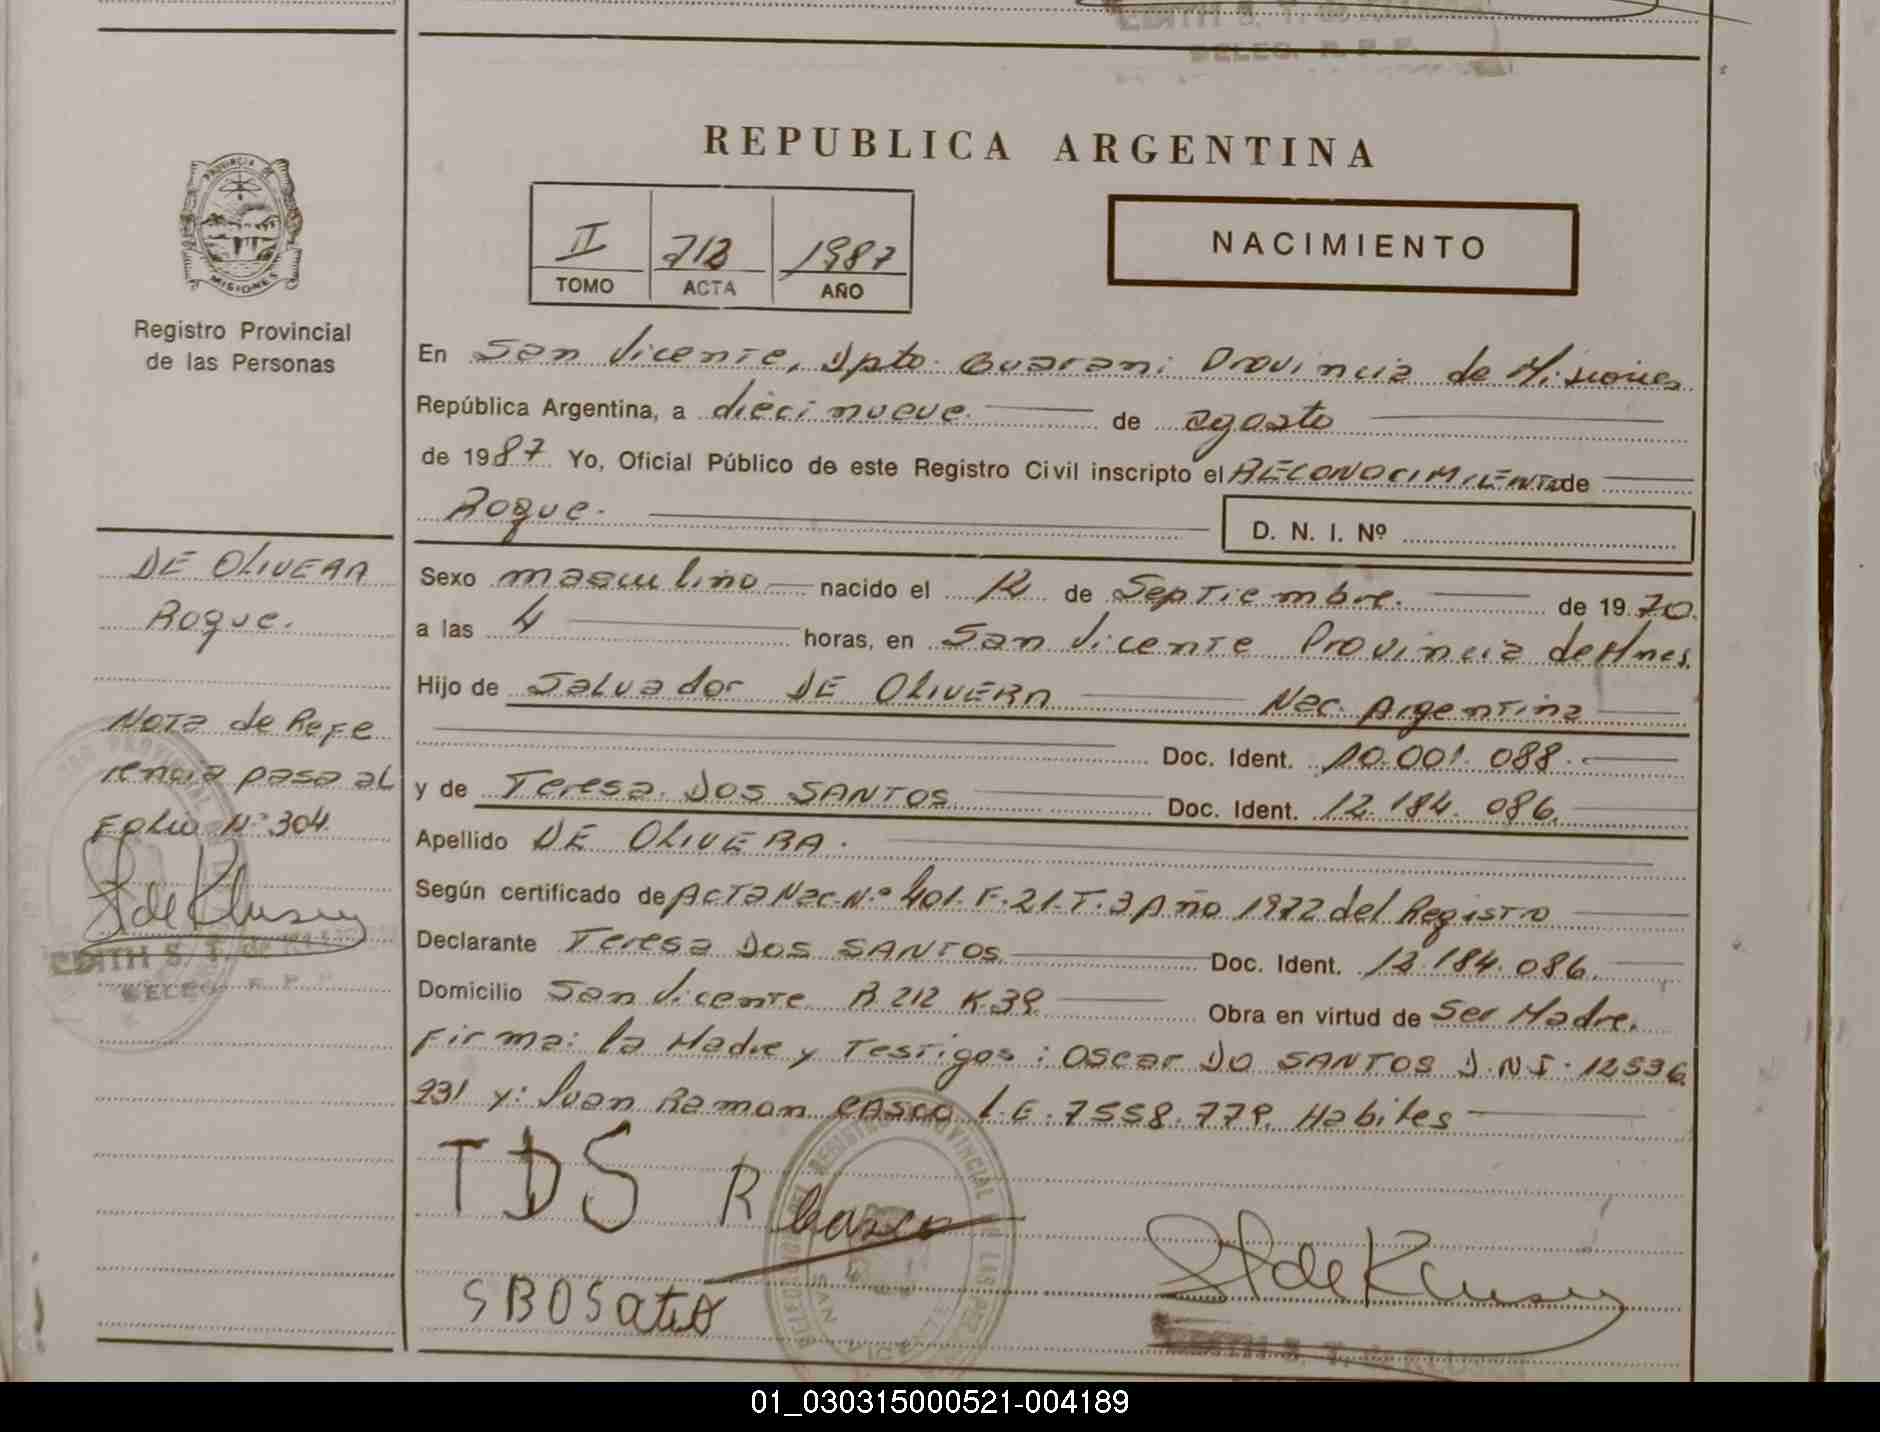 REPUBLICA ARGENTINA
II 712 1987
TOMO ACTA AÑO
NACIMIENTO
PROVINCIA DE
MISIONES
Registro Provincial
de las Personas
En San Vicente, Dpto. Guarani Provincia de Misiones
República Argentina, a diecinueve de agosto
de 1987 Yo, Oficial Público de este Registro Civil inscripto el RECONOCIMIENTO de
Roque. D. N. I. Nº
DE OLIVERA
Roque.
Nota de Refe
rencia pasa al
Folio Nº 304
EDITH S. T. de
DELEG. R. P. P.
Sexo masculino nacido el 12 de Septiembre. de 1970
a las 4 horas, en San Vicente Provincia de Mnes
Hijo de Salvador DE OLIVERA Nac. Argentina
Doc. Ident. 10.001.088.
y de Teresa DOS SANTOS Doc. Ident. 12.184.086.
Apellido DE OLIVERA.
Según certificado de Acta Nac. Nº 401. F. 21. T. 3 Año 1972 del Registro
Declarante Teresa DOS SANTOS Doc. Ident. 12.184.086.
Domicilio San Vicente R 212 K.39 Obra en virtud de Ser Madre.
Firma: la Madre y Testigos: Oscar DO SANTOS D.N.I. 12536
931 y: Juan Ramon CASCO L.E. 7558.779. Habiles
TDS R Casco
EDITH S. T. de
01_030315000521-004189